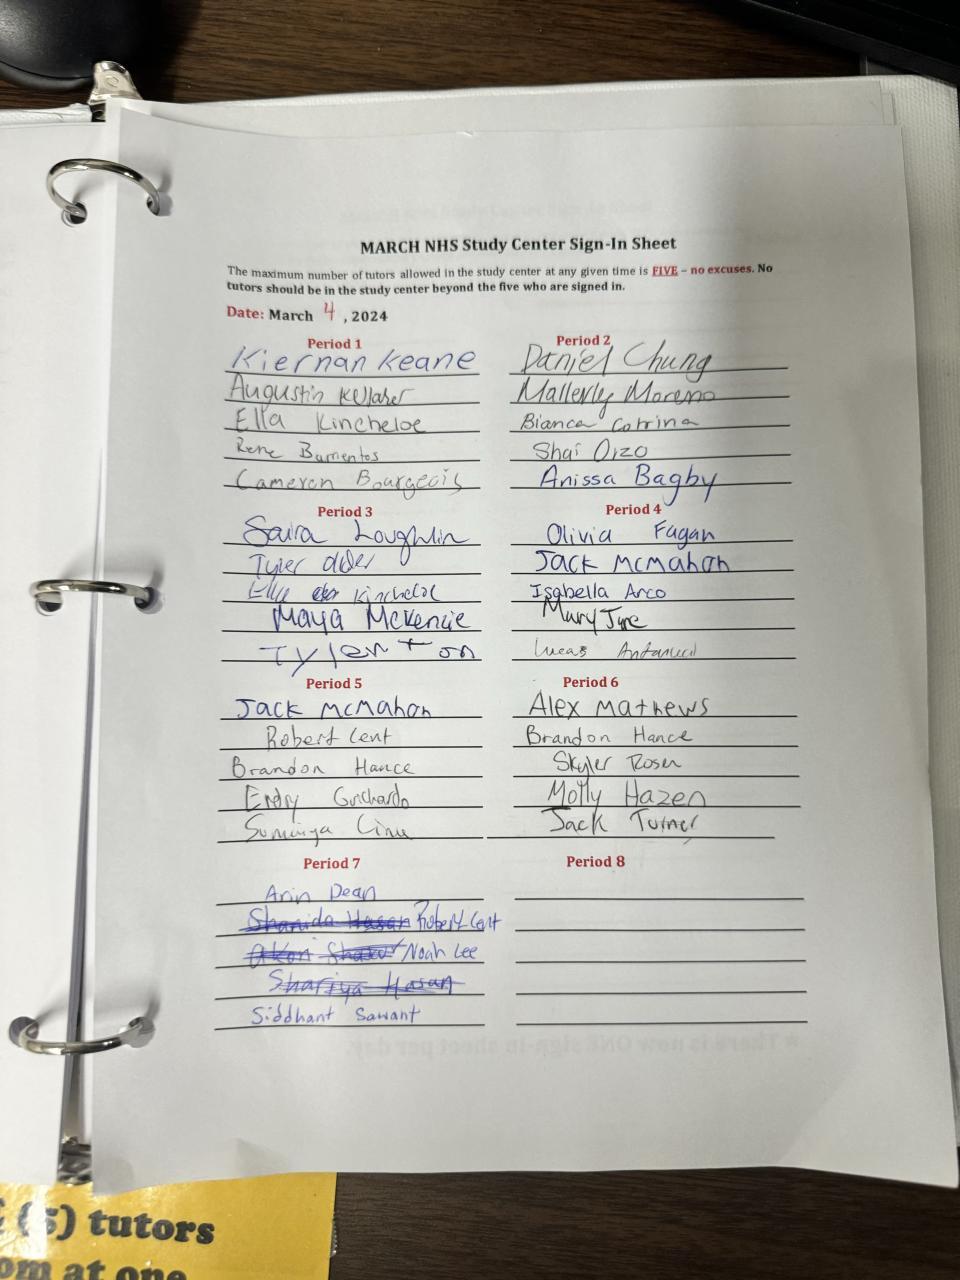 MARCH NHS Study Center Sign-In Sheet
The maximum number of tutors allowed in the study center at any given time is FIVE – no excuses. No
tutors should be in the study center beyond the five who are signed in.
Date: March 4, 2024
Period 1
Kiernan Keane
Augustin
Ella Kincheloe
Rene Barrientos
Cameron Bourgeois
Period 2
Daniel Chung
Mallerly Moreno
Bianca Cotrina
Shai Orzo
Anissa Bagby
Period 3
Saira Loughlin
Tyler
Kincheloe
Maya McKenzie
Tyler
Period 4
Olivia Fagan
Jack McMahon
Isabella Arco
Mary
Lucas
Period 5
Jack McMahon
Robert Cent
Brandon Hance
Endry Guichardo
Period 6
Alex Mathews
Brandon Hance
Skyler Rosen
Molly Hazen
Jack Turner
Period 7
Arin Dean
Shanida Hasan Robert Cent
Noah Lee
Shariya Hasan
Siddhant Sawant
Period 8
(5) tutors
om at one